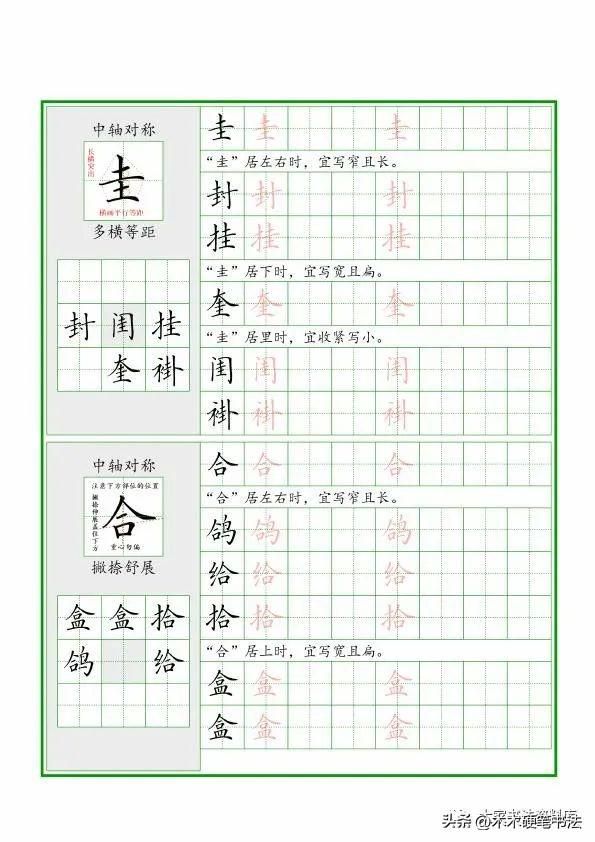 中轴对称
长横突出
圭
横画平行等距
多横等距
封 闺 挂
奎 褂
圭 圭 圭
“圭”居左右时，宜写窄且长。
封 封 封
挂 挂 挂
“圭”居下时，宜写宽且扁。
奎 奎 奎
“圭”居里时，宜收紧写小。
闺 闺 闺
褂 褂 褂
中轴对称
注意下方部位的位置
撇捺伸展盖住下方
合
重心勿偏
撇捺舒展
盒 盒 拾
鸽 给
合 合 合
“合”居左右时，宜写窄且长。
鸽 鸽 鸽
给 给 给
拾 拾 拾
“合”居上时，宜写宽且扁。
盒 盒 盒
盒 盒 盒
头条 @木木硬笔书法